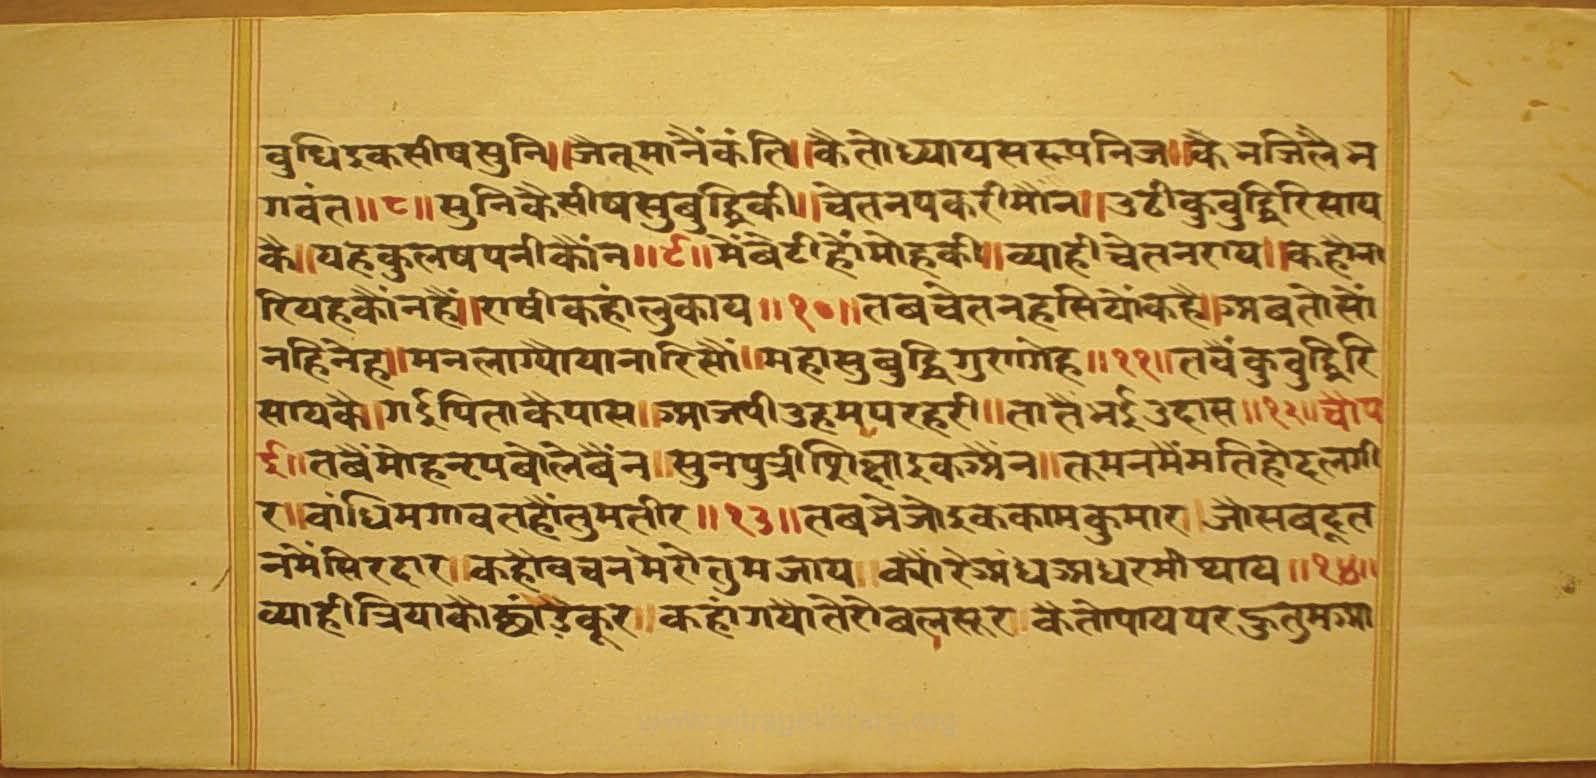 वुधिइकसीषसुनि॥जैतूमानैंकंति॥कैतोध्यायसरूपनिज॥कैनजिलैन
गवंत॥८॥सुनिकैसीषसुबुद्धिकी॥चेतनपकरीमौन॥उठीकुवुद्धिरिसाय
कै॥यहकुलषपनीकौंन॥९॥मेंबेटीहौंमोहकी॥व्याहीचेतनराय॥कहौना
रियहकौंनहै॥राषीकहांलुकाय॥१०॥तबचेतनहसियौंकहै॥अबतोसौं
नहिनेह॥मनलाग्यौयानारिसौं॥महासुबुद्धिगुरागेह॥११॥तवैंकुवुद्धिरि
सायकै॥गईपिताकैपास॥आजपीउहमपरहरी॥तातैंभईउदास॥१२॥चौप
ई॥तबैंमोहनृपबोलेबैंन॥सुनपुत्रीशिक्षाइकअैंन॥तूमनमैंमतिहोदलगी
र॥वांधिमगावतहौंतुमतीर॥१३॥तबभेजोइककामकुमार॥जोसबदूत
नमेंसिरदार॥कहौवचनमेरोतुमजाय॥क्यौंरेअंधअधरमीथाय॥१४॥
व्याहीत्रियाकौछांडैकूर॥कहांगयौतेरोबलसूर॥कैतोपायपरहुतुमआ